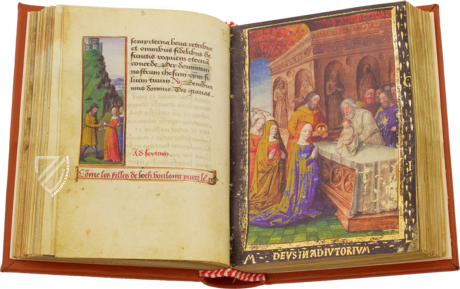 sempiterna beata retribue
et omnibus fidelibus de
functis requiem eternā
concede. Per dominum
nostrum ihesum xp̄m fi
lium tuum
mus domino. Deo gratias
Ad sextam
Cōme les filles de loth
DEVS IN ADIVTORIVM